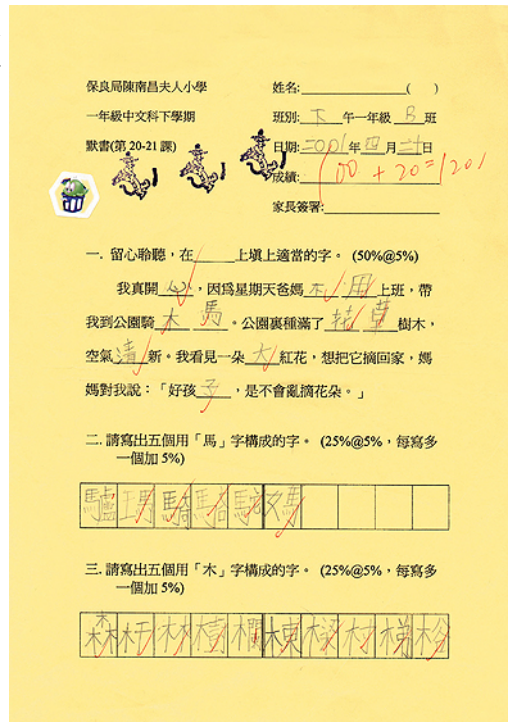 保良局陳南昌夫人小學 姓名: ( )
一年級中文科下學期 班別: 下 午一年級 B 班
默書(第 20-21 課) 日期: 二00八 年 四 月 二十 日
成績: 100 + 20 = 120/
家長簽署:
一. 留心聆聽，在 上填上適當的字。 (50%@5%)
我真開 心 ，因為星期天爸媽 不 用 上班，帶
我到公園騎 木 馬 。公園裏種滿了 花 草 樹木，
空氣 清 新。我看見一朵 大 紅花，想把它摘回家，媽
媽對我說：「好孩 子 ，是不會亂摘花朵。」
二. 請寫出五個用「馬」字構成的字。 (25%@5%，每寫多
一個加 5%)
驢 瑪 騎 駱 駝 媽
三. 請寫出五個用「木」字構成的字。 (25%@5%，每寫多
一個加 5%)
森 杆 林 欄 棟 村 梯